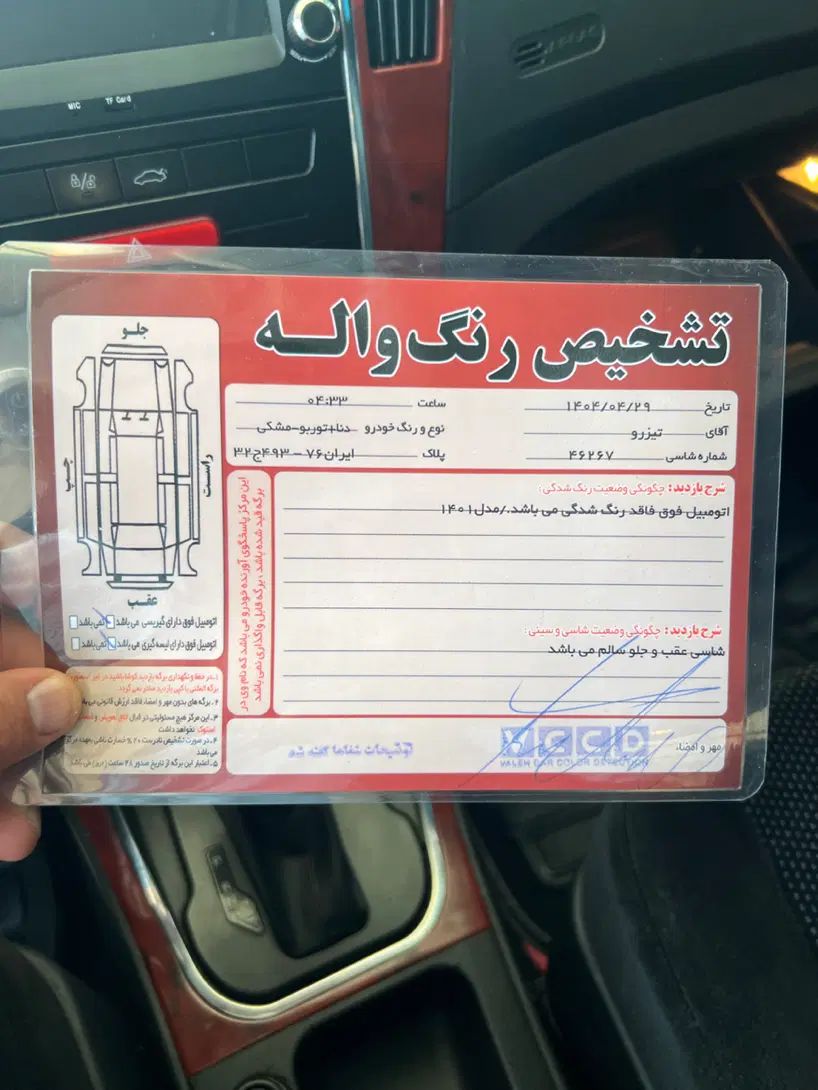 MIC
TF Card
تشخیص رنگ واله
تاریخ ۱۴۰۴/۰۴/۲۹
ساعت ۰۴:۳۳
آقای تیزرو
نوع و رنگ خودرو دنا+توربو-مشکی
شماره شاسی ۴۶۲۶۷
پلاک ایران۷۶ - ۴۹۳ج۳۲
شرح بازدید: چگونگی وضعیت رنگ شدگی:
اتومبیل فوق فاقد رنگ شدگی می باشد./مدل۱۴۰۱
شرح بازدید: چگونگی وضعیت شاسی و سینی:
شاسی عقب و جلو سالم می باشد
مهر و امضاء
VCCD
VALEH CAR COLOR DETECTION
توضیحات شفاها گفته شد
این مرکز پاسخگوی آورنده خودرو می باشد که نام وی در
برگه قید شده باشد، برگه قابل واگذاری نمی باشد
جلو
چپ
راست
عقب
اتومبیل فوق دارای گلیرسی می باشد نمی باشد
اتومبیل فوق دارای لیسه گیری می باشد نمی باشد
۱. در حفظ و نگهداری برگه بازدید کوشا باشید در غیر
برگه المثنی یا کپی بازدید صادر نمی گردد.
۲. برگه های بدون مهر و امضاء فاقد ارزش قانونی می
۳. این مرکز هیچ مسئولیتی در قبال اتاق تعویض و
استوک نخواهد داشت
۴. در صورت تشخیص نادرست ۲۰ % خسارت ناشی بعهده مرکز
می باشد
۵. اعتبار این برگه از تاریخ صدور ۴۸ ساعت می باشد